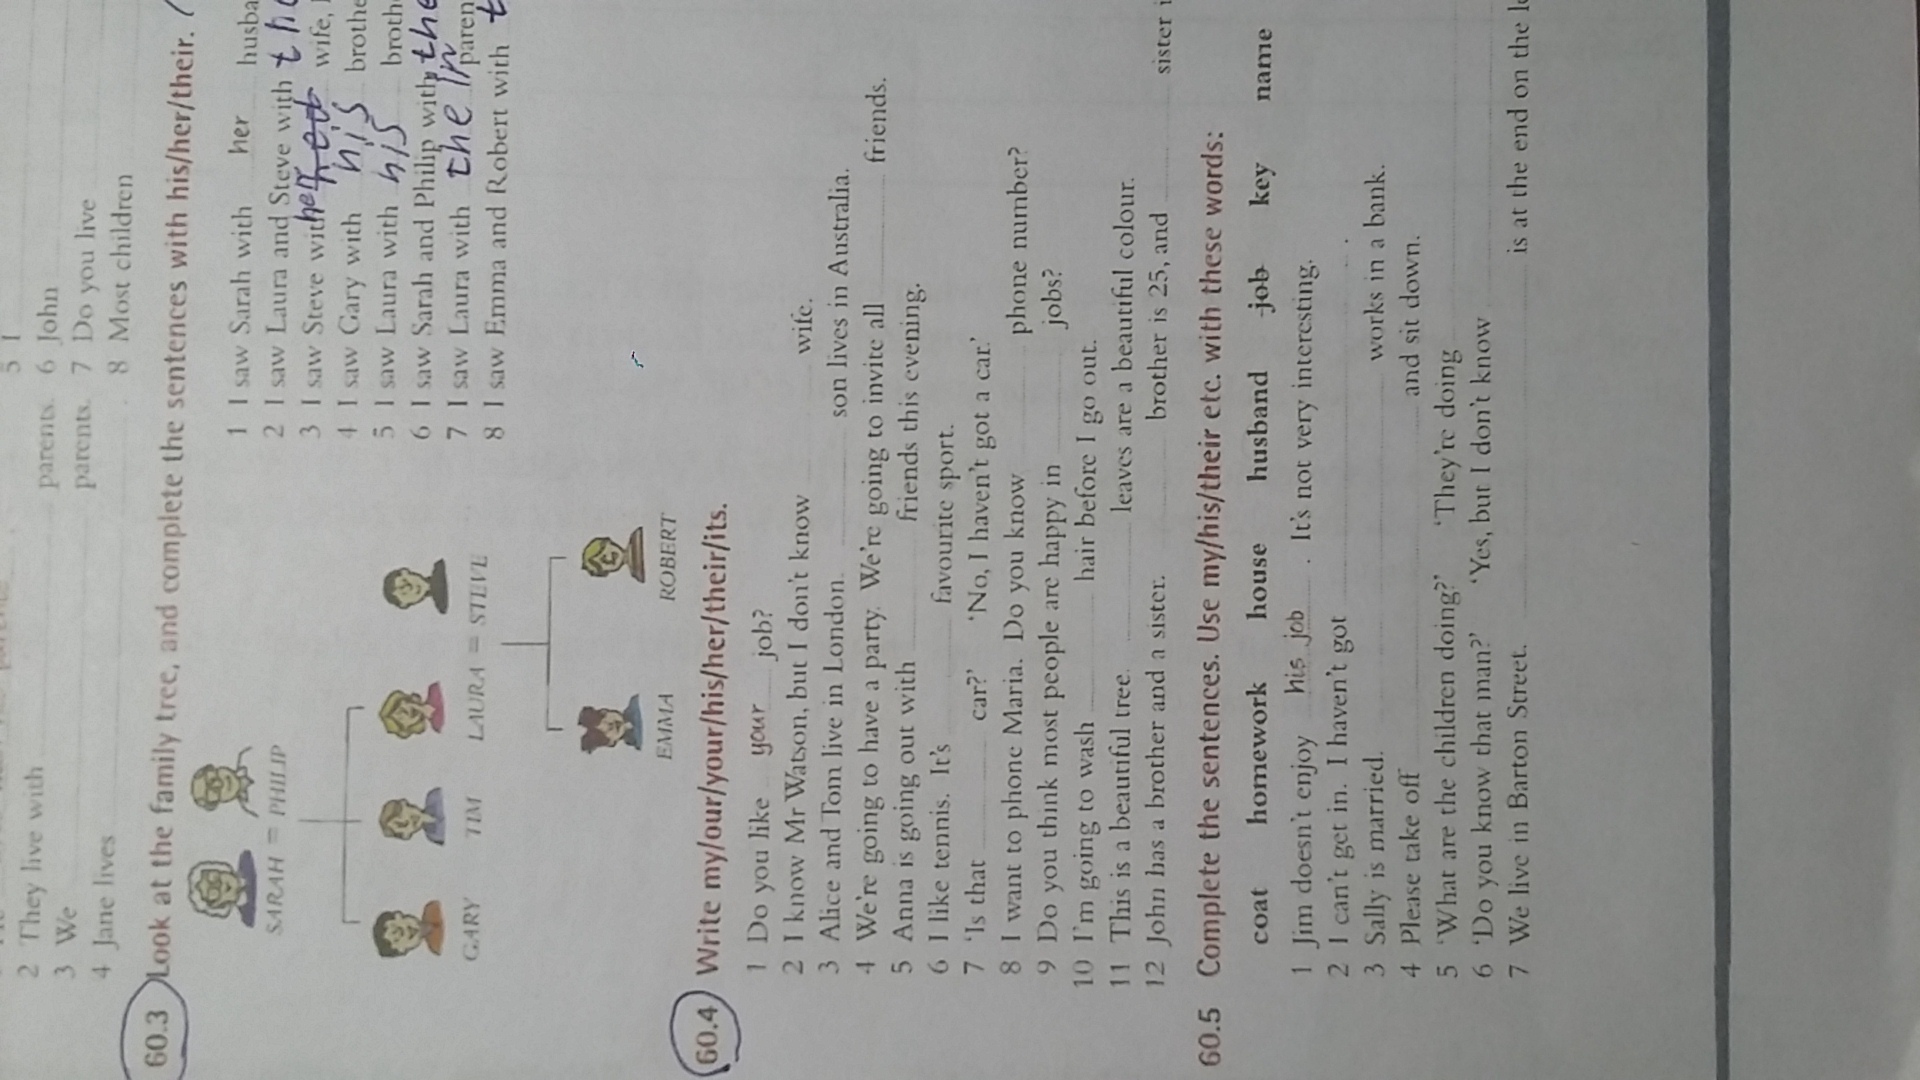 5 I
2 They live with parents. 6 John
3 We parents. 7 Do you live
4 Jane lives . 8 Most children
60.3 Look at the family tree, and complete the sentences with his/her/their.
SARAH = PHILIP
GARY TIM LAURA = STEVE
EMMA ROBERT
1 I saw Sarah with her husba
2 I saw Laura and Steve with the
3 I saw Steve with her wife,
4 I saw Gary with his brothe
5 I saw Laura with his broth
6 I saw Sarah and Philip with the
7 I saw Laura with their paren
8 I saw Emma and Robert with t
60.4 Write my/our/your/his/her/their/its.
1 Do you like your job?
2 I know Mr Watson, but I don't know wife.
3 Alice and Tom live in London. son lives in Australia.
4 We're going to have a party. We're going to invite all friends.
5 Anna is going out with friends this evening.
6 I like tennis. It's favourite sport.
7 'Is that car?' 'No, I haven't got a car.'
8 I want to phone Maria. Do you know phone number?
9 Do you think most people are happy in jobs?
10 I'm going to wash hair before I go out.
11 This is a beautiful tree. leaves are a beautiful colour.
12 John has a brother and a sister. brother is 25, and sister i
60.5 Complete the sentences. Use my/his/their etc. with these words:
coat homework house husband job key name
1 Jim doesn't enjoy his job . It's not very interesting.
2 I can't get in. I haven't got .
3 Sally is married. works in a bank.
4 Please take off and sit down.
5 'What are the children doing?' 'They're doing
6 'Do you know that man?' 'Yes, but I don't know
7 We live in Barton Street. is at the end on the le